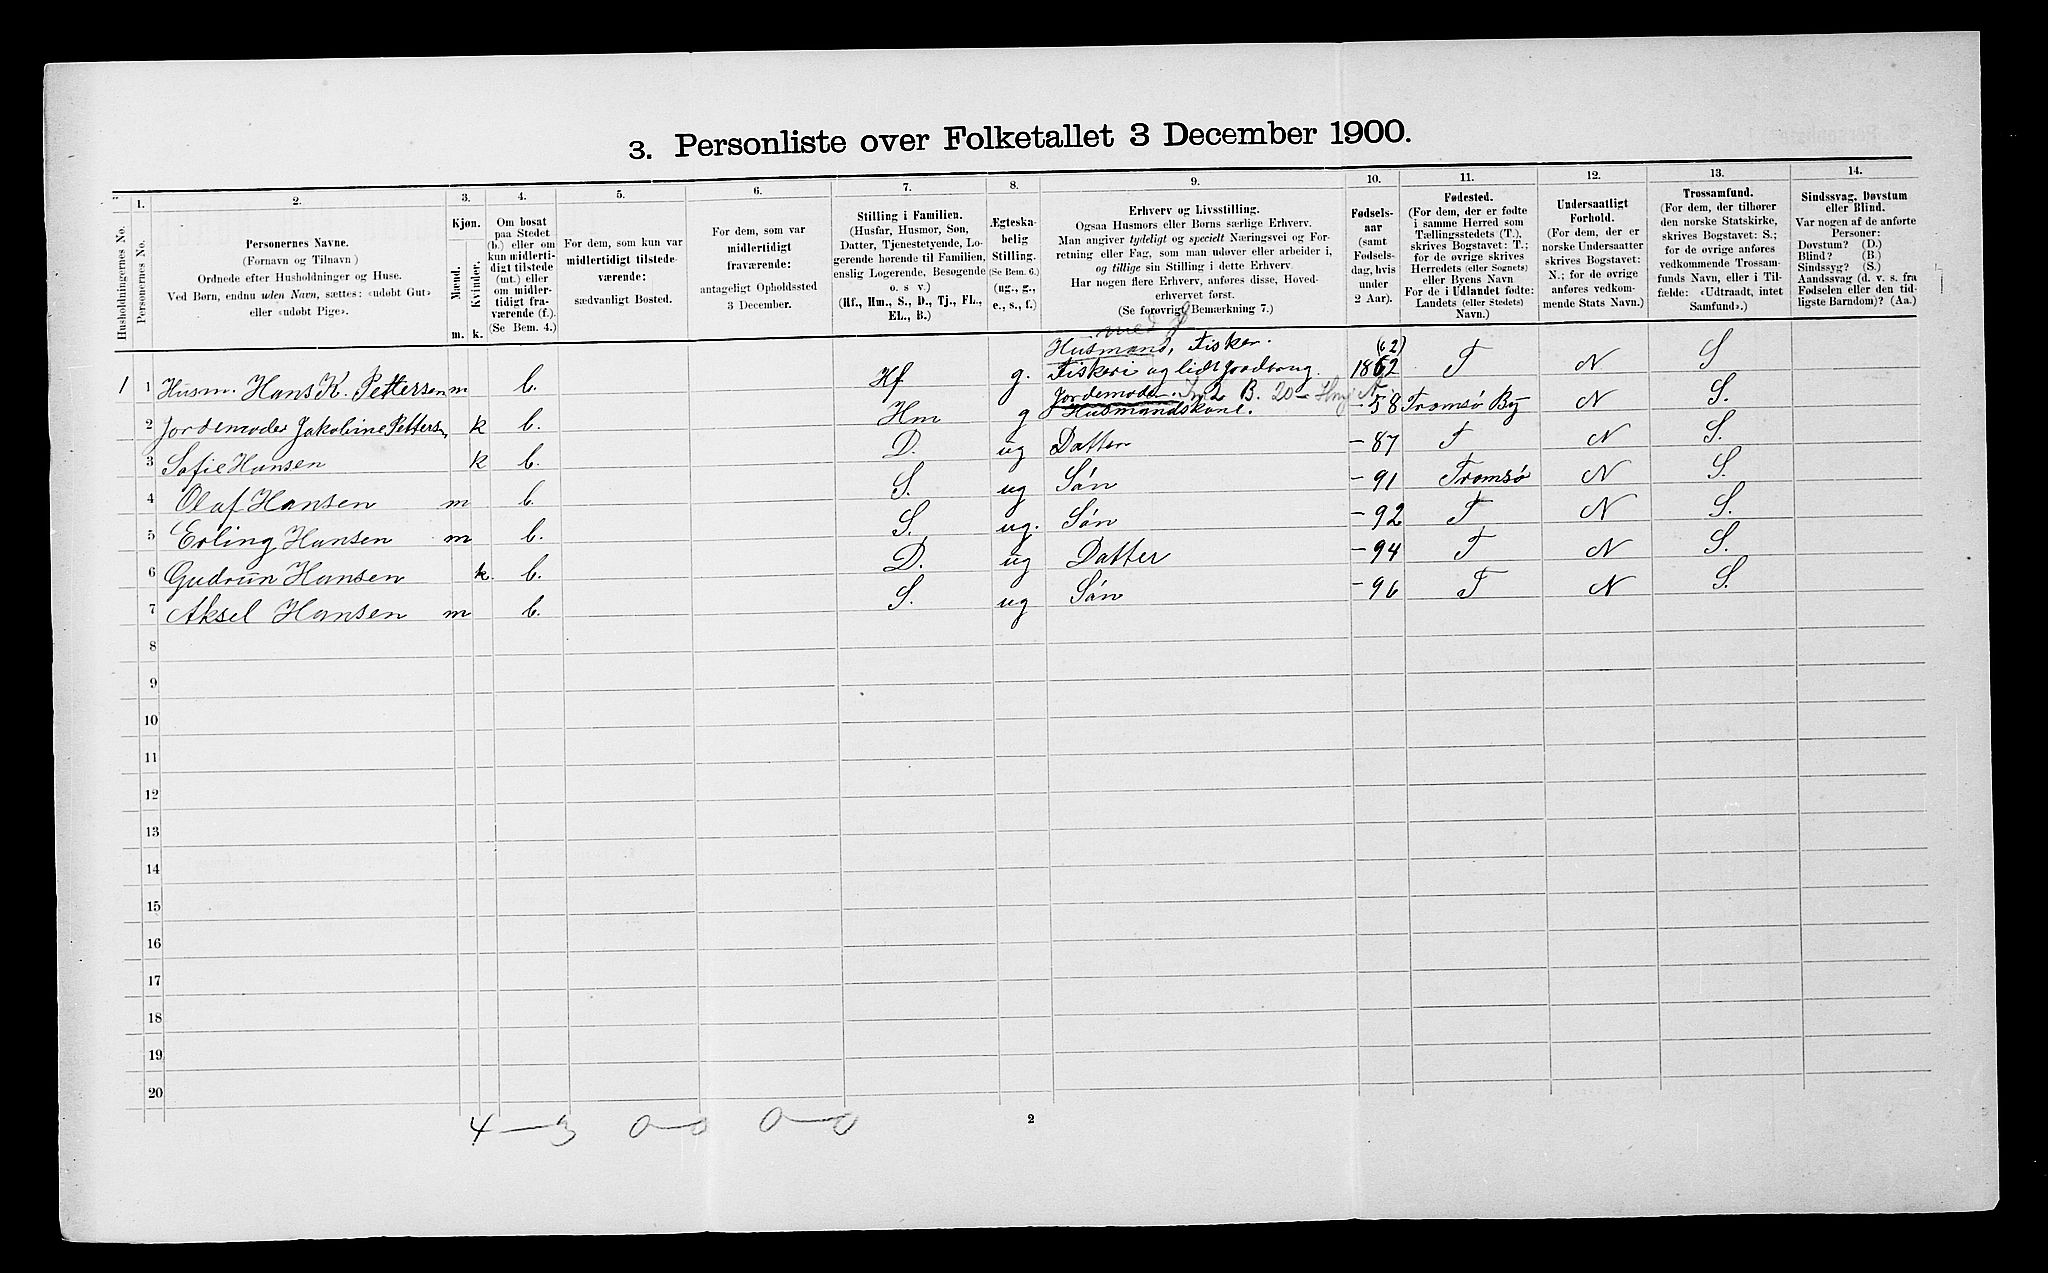 3. Personliste over Folketallet 3 December 1900.
Husholdningernes No.
1.
Personernes No.
2.
Personernes Navne.
(Fornavn og Tilnavn)
Ordnede efter Husholdninger og Huse.
Ved Børn, endnu uden Navn, sættes: «udøbt Gut»
eller «udøbt Pige».
3.
Kjøn.
Mænd.
Kvinder.
m. k.
4.
Om bosat
paa Stedet
(b.) eller om
kun midlerti-
digt tilstede
(mt.) eller
om midler-
tidigt fra-
værende (f.).
(Se Bem. 4.)
5.
For dem, som kun var
midlertidigt tilstede-
værende:
sædvanligt Bosted.
6.
For dem, som var
midlertidigt
fraværende:
antageligt Opholdssted
3 December.
7.
Stilling i Familien.
(Husfar, Husmor, Søn,
Datter, Tjenestetyende, Lo-
gerende hørende til Familien,
enslig Logerende, Besøgende
o. s. v.)
(Hf., Hm., S., D., Tj., FL.,
EL., B.)
8.
Ægteska-
belig
Stilling.
(Se Bem. 6.)
(ug., g.,
e., s., f.)
9.
Erhverv og Livsstilling.
Ogsaa Husmors eller Børns særlige Erhverv.
Man angiver tydeligt og specielt Næringsvei og For-
retning eller Fag, som man udøver eller arbeider i,
og tillige sin Stilling i dette Erhverv.
Har nogen flere Erhverv, anføres disse, Hoved-
erhvervet først.
(Se forøvrigt Bemærkning 7.)
10.
Fødsels-
aar
(samt
Fødsels-
dag, hvis
under
2 Aar).
11.
Fødested.
(For dem, der er fødte
i samme Herred som
Tællingsstedets (T.),
skrives Bogstavet: T.;
for de øvrige skrives
Herredets (eller Sognets)
eller Byens Navn
For de i Udlandet fødte:
Landets (eller Stedets)
Navn.)
12.
Undersaatligt
Forhold.
(For dem, der er
norske Undersaatter
skrives Bogstavet:
N.; for de øvrige
anføres vedkom-
mende Stats Navn.)
13.
Trossamfund.
(For dem, der tilhører
den norske Statskirke,
skrives Bogstavet: S.;
for de øvrige anføres
vedkommende Trossam-
funds Navn, eller i Til-
fælde: «Udtraadt, intet
Samfund».)
14.
Sindssvag, Døvstum
eller Blind.
Var nogen af de anførte
Personer:
Døvstum? (D.)
Blind? (B.)
Sindssyg? (S.)
Aandssvag (d. v. s. fra
Fødselen eller den tid-
ligste Barndom)? (Aa.)
med J
Husmand, Fisker. (62)
1 1 Husm. Hans K. Pettersen m b. Hf g. Fiskeri og lidt Jordbrug. 1862 T N S
Jordemoder. 2 B. 20
2 Jordemoder Jakobine Petters k b. Hm g Husmandskone. -58 Tromsø By N S.
3 Sofie Hansen k b. D. ug Datter -87 T N S.
4 Olaf Hansen m b. S. ug Søn -91 Tromsø N S.
5 Erling Hansen m b. S. ug. Søn -92 T N S.
6 Gudrun Hansen k. b. D. ug Datter -94 T N S.
7 Aksel Hansen m b. S. ug Søn -96 T N S.
8
9
10
11
12
13
14
15
16
17
18
19
20
4-3 0-0 0-0 2